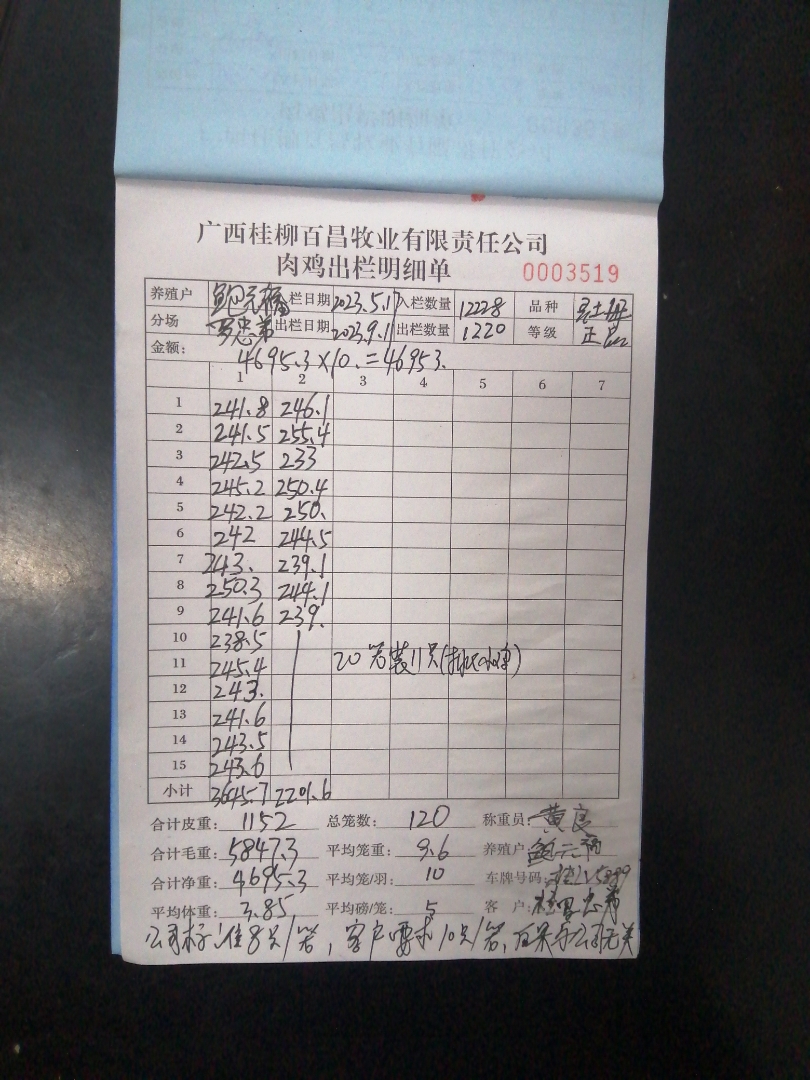 广西桂柳百昌牧业有限责任公司
肉鸡出栏明细单 0003519
养殖户 鲍元福 入栏日期 2023.5.17 入栏数量 12228 品种
分场 罗忠弟 出栏日期 2023.9.11 出栏数量 1220 等级 正品
金额: 4695.3×10.=46953.
1 2 3 4 5 6 7
1 241.8 246.1
2 241.5 255.4
3 242.5 233
4 245.2 250.4
5 242.2 250.
6 242 244.5
7 243. 239.1
8 250.3 244.1
9 241.6 239.
10 238.5
11 245.4 20笼装11只
12 243.
13 241.6
14 243.5
15 243.6
小计 3645.7 2201.6
合计皮重: 1152 总笼数: 120 称重员: 黄良
合计毛重: 5847.3 平均笼重: 9.6 养殖户: 鲍元福
合计净重: 4695.3 平均笼/羽: 10 车牌号码:
平均体重: 3.85 平均磅/笼: 5 客 户:
公司标准8只/笼, 客户要求10只/笼, 后果与公司无关